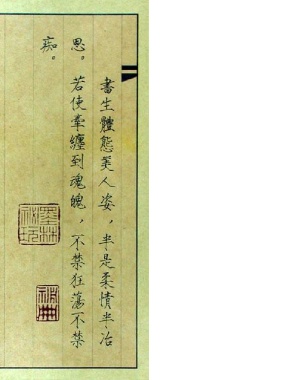 書生體態美人姿，半是柔情半冶
思。若使牽纏到魂魄，不禁狂蕩不禁
痴。
墨林
祕玩